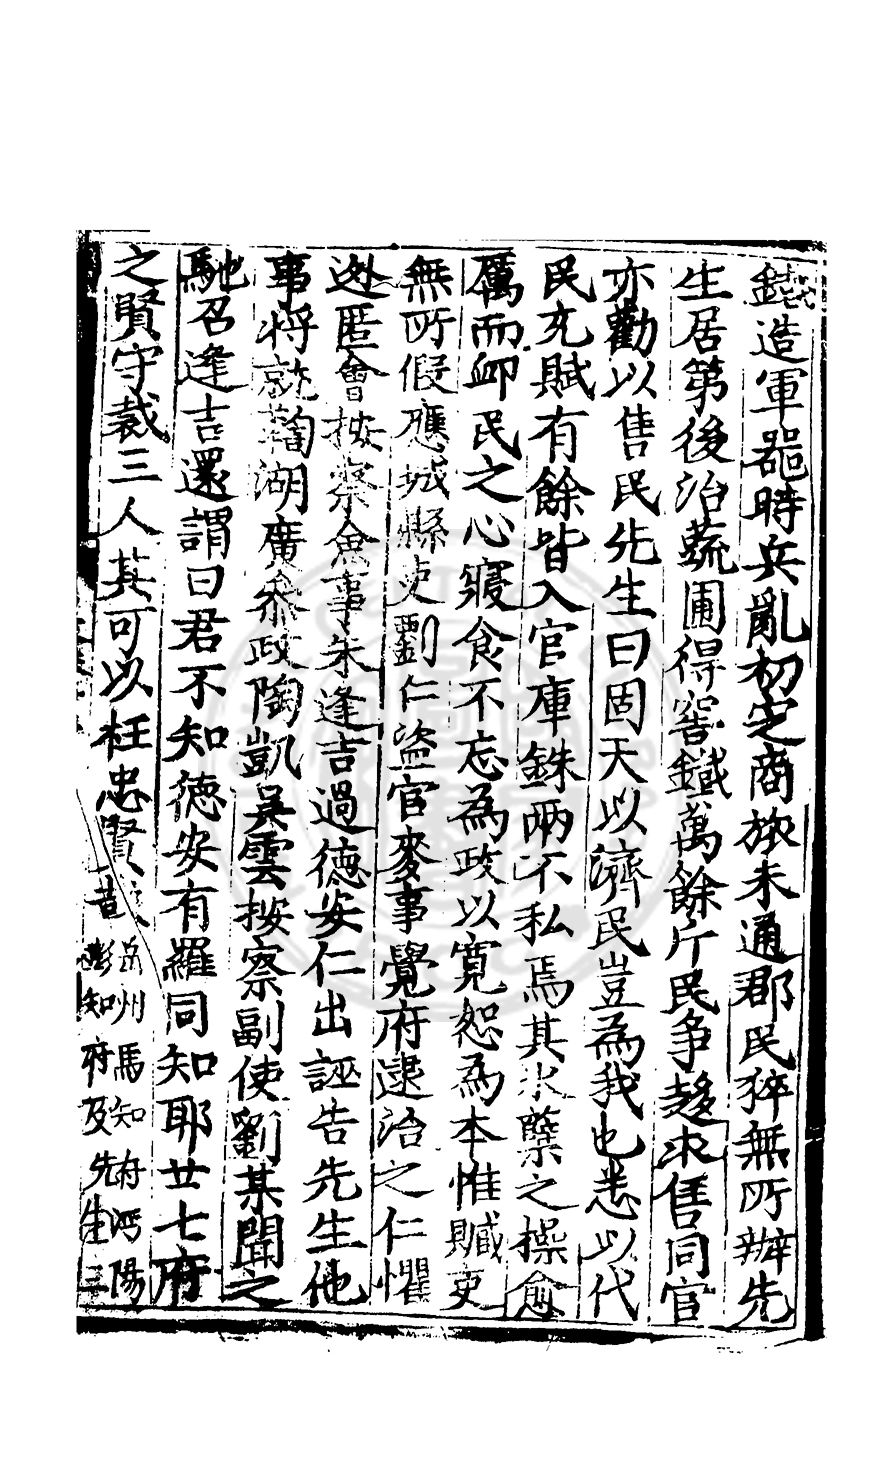 鐵造軍器時兵亂初定商旅未通郡民猝無所辦先
生居第後治蔬圃得窖鐵萬餘斤民争趍求售同官
亦勸以售民先生曰固天以濟民豈為我也悉以代
民充賦有餘皆入官庫銖兩不私焉其氷蘖之操愈
厲而䘏民之心寢食不忘為政以寛恕為本惟贓吏
無所假應城縣吏劉仁盗官麥事覺府逮治之仁懼
逃匿會按察僉事朱逢吉過德安仁出誣告先生他
事将就鞫湖廣叅政陶凱吴雲按察副使劉某聞之
馳召逢吉還謂曰君不知德安有羅同知耶廿七府
之賢守裁三人其可以枉忠賢
岳州馬知府沔陽
知府及先生三